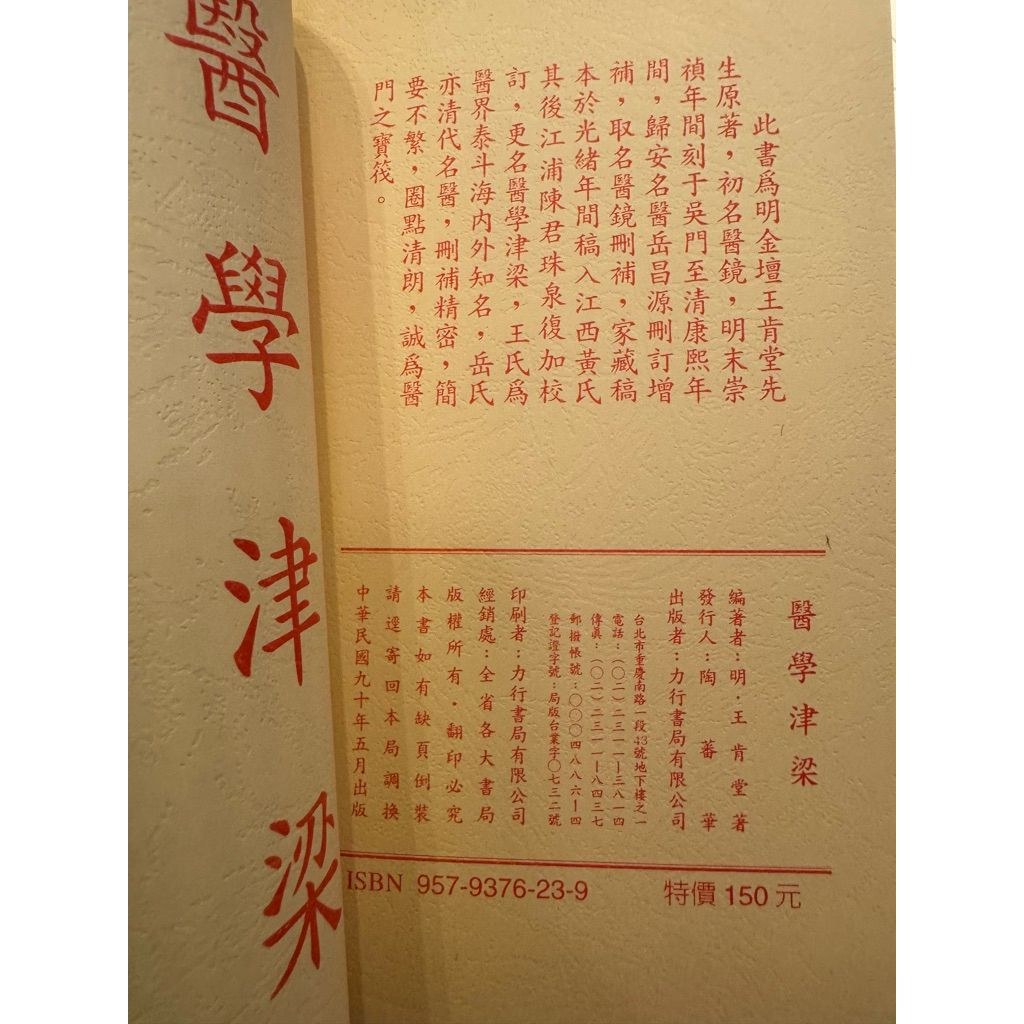 醫學津梁
此書爲明金壇王肯堂先
生原著，初名醫鏡，明末崇
禎年間刻于吳門至清康熙年
間，歸安名醫岳昌源刪訂增
補，取名醫鏡刪補，家藏稿
本於光緒年間稿入江西黃氏
其後江浦陳君珠泉復加校
訂，更名醫學津梁，王氏爲
醫界泰斗海內外知名，岳氏
亦清代名醫，刪補精密，簡
要不繁，圈點清朗，誠爲醫
門之寶筏。
醫學津梁
編著者：明．王肯堂著
發行人：陶蕃華
出版者：力行書局有限公司
台北市重慶南路一段43號地下樓之一
電話：（〇二）二三一一－三八一四
傳真：（〇二）二三一一－八四三七
郵撥帳號：〇〇〇四八八六－四
登記證字號：局版台業字〇七三二號
印刷者：力行書局有限公司
經銷處：全省各大書局
版權所有．翻印必究
本書如有缺頁倒裝
請逕寄回本局調換
中華民國九十年五月出版
ISBN 957-9376-23-9
特價150元